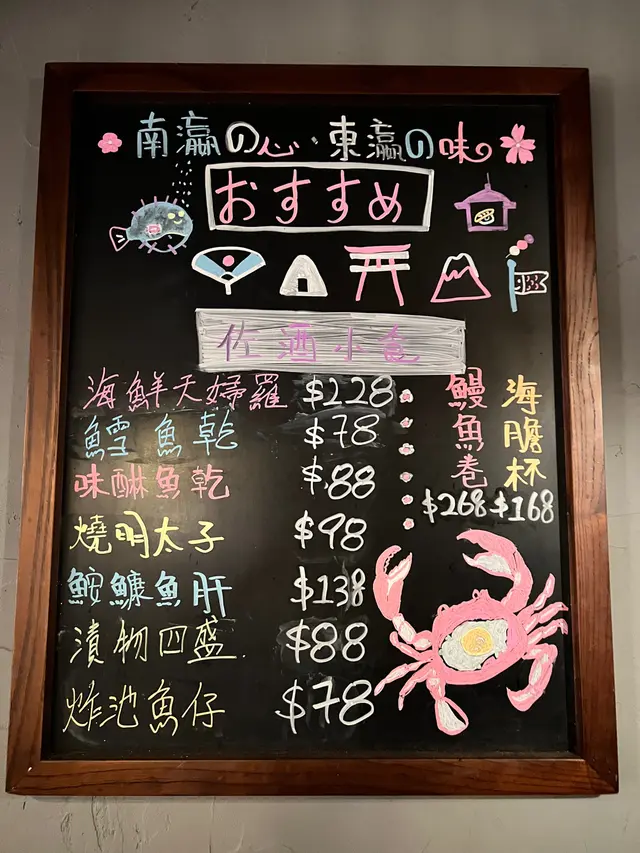 南瀛の心、東瀛の味
おすすめ
佐酒小食
海鮮天婦羅 $228
鱈魚乾 $78
味醂魚乾 $88
燒明太子 $98
鮟鱇魚肝 $138
漬物四盛 $88
炸池魚仔 $78
鰻魚卷 $268
海膽杯 $168